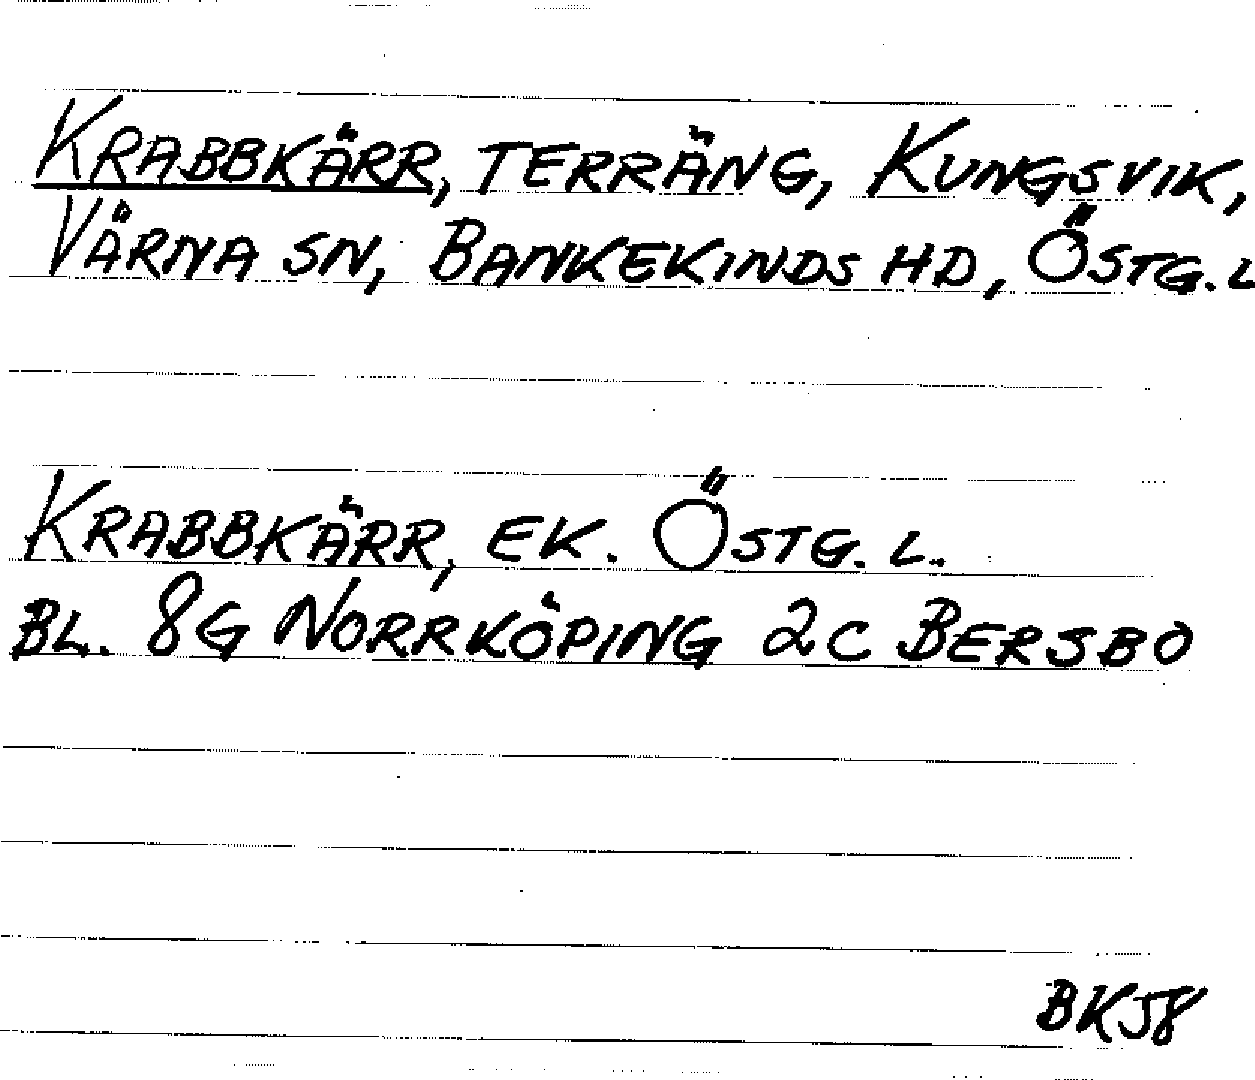 KRABBKÄRR, TERRÄNG, KUNGSVIK,
VÄRNA SN, BANKEKINDS HD, ÖSTG. L
KRABBKÄRR, EK. ÖSTG. L.
BL. 8G NORRKÖPING 2C BERSBO
BKJ8